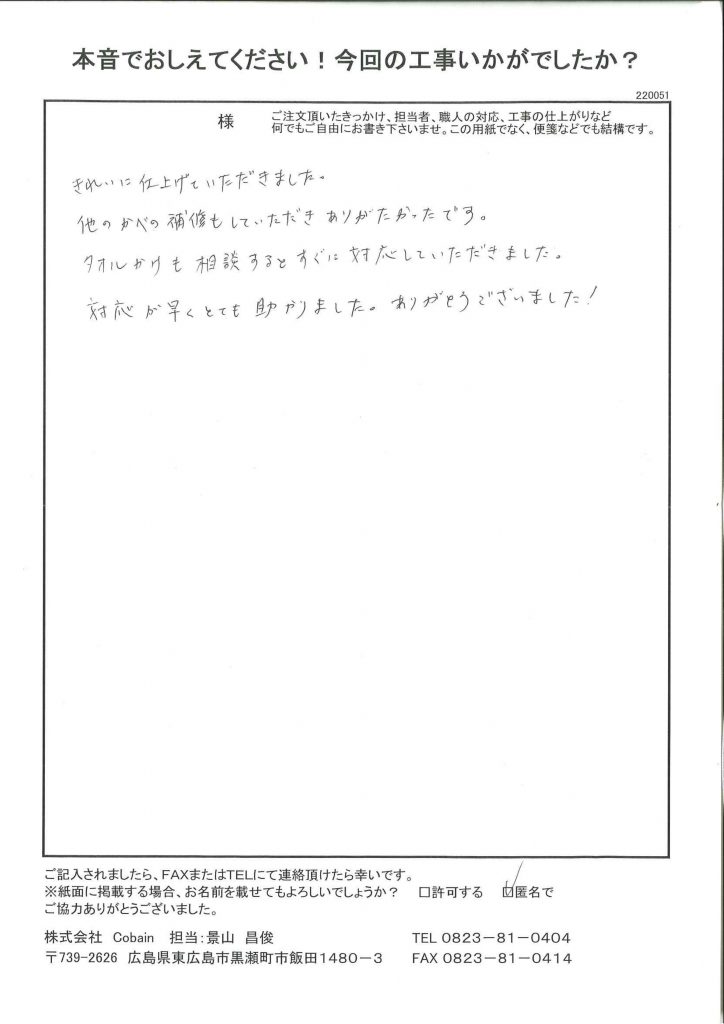 本音でおしえてください！今回の工事いかがでしたか？
220051
様
ご注文頂いたきっかけ、担当者、職人の対応、工事の仕上がりなど
何でもご自由にお書き下さいませ。この用紙でなく、便箋などでも結構です。
きれいに仕上げていただきました。
他のかべの補修もしていただきありがたかったです。
タオルかけも相談するとすぐに対応していただきました。
対応が早くとても助かりました。ありがとうございました！
ご記入されましたら、FAXまたはTELにて連絡頂けたら幸いです。
※紙面に掲載する場合、お名前を載せてもよろしいでしょうか？ □許可する ☑匿名で
ご協力ありがとうございました。
株式会社 Cobain 担当：景山 昌俊 TEL 0823－81－0404
〒739-2626 広島県東広島市黒瀬町市飯田1480－3 FAX 0823－81－0414